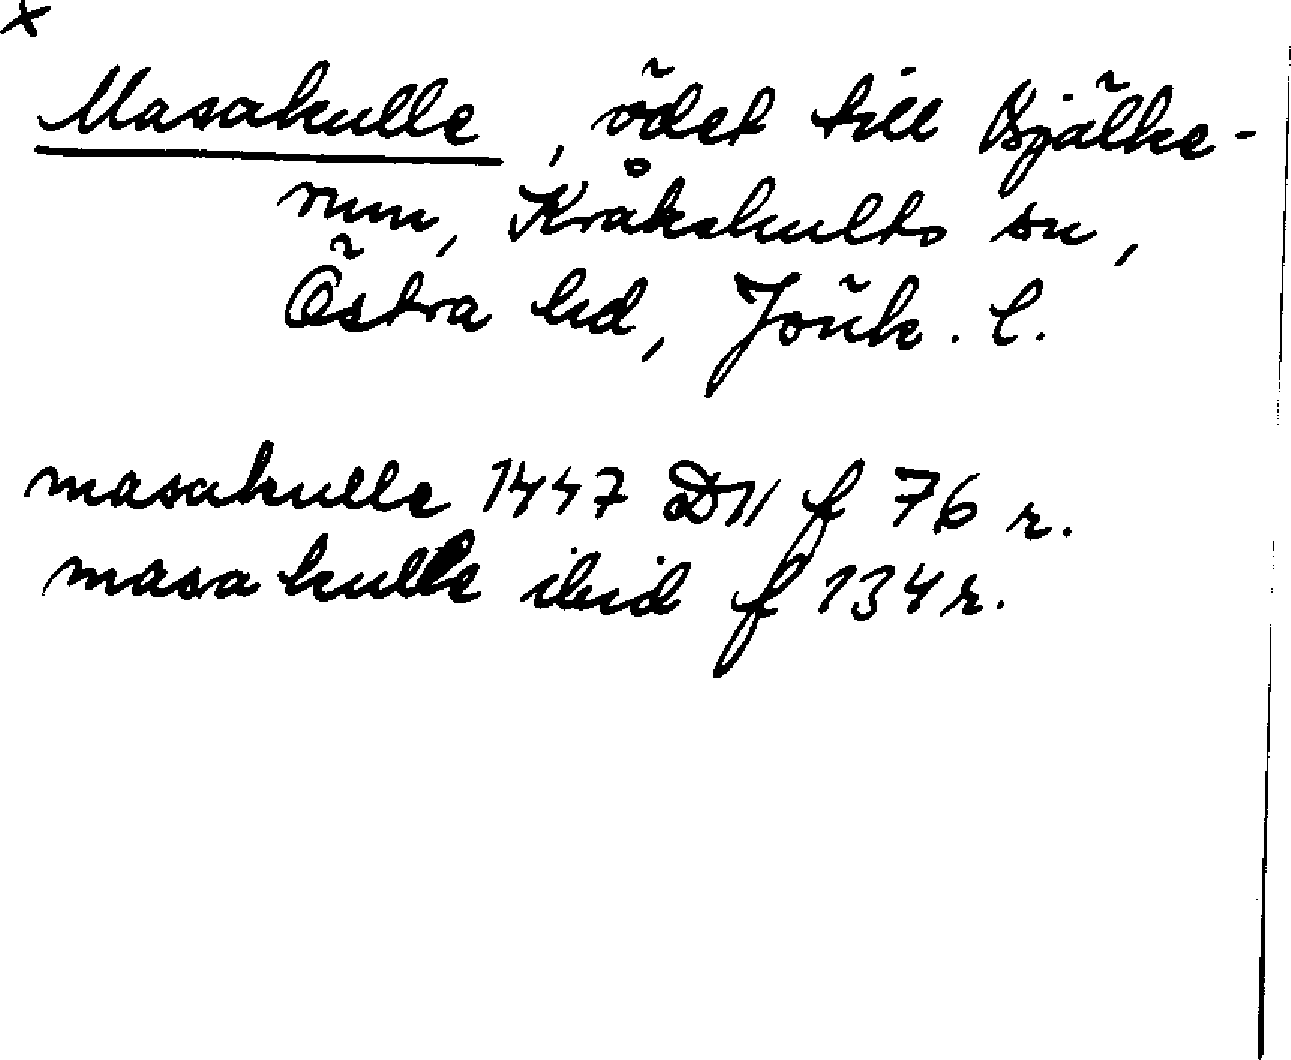 x
Masakulle, ödet till Bjälke-
rum, Kråkshults sn,
Östra hd, Jönk. l.
masakulle 1447 D11 f 76 r.
masa kulle ibid f 134 r.